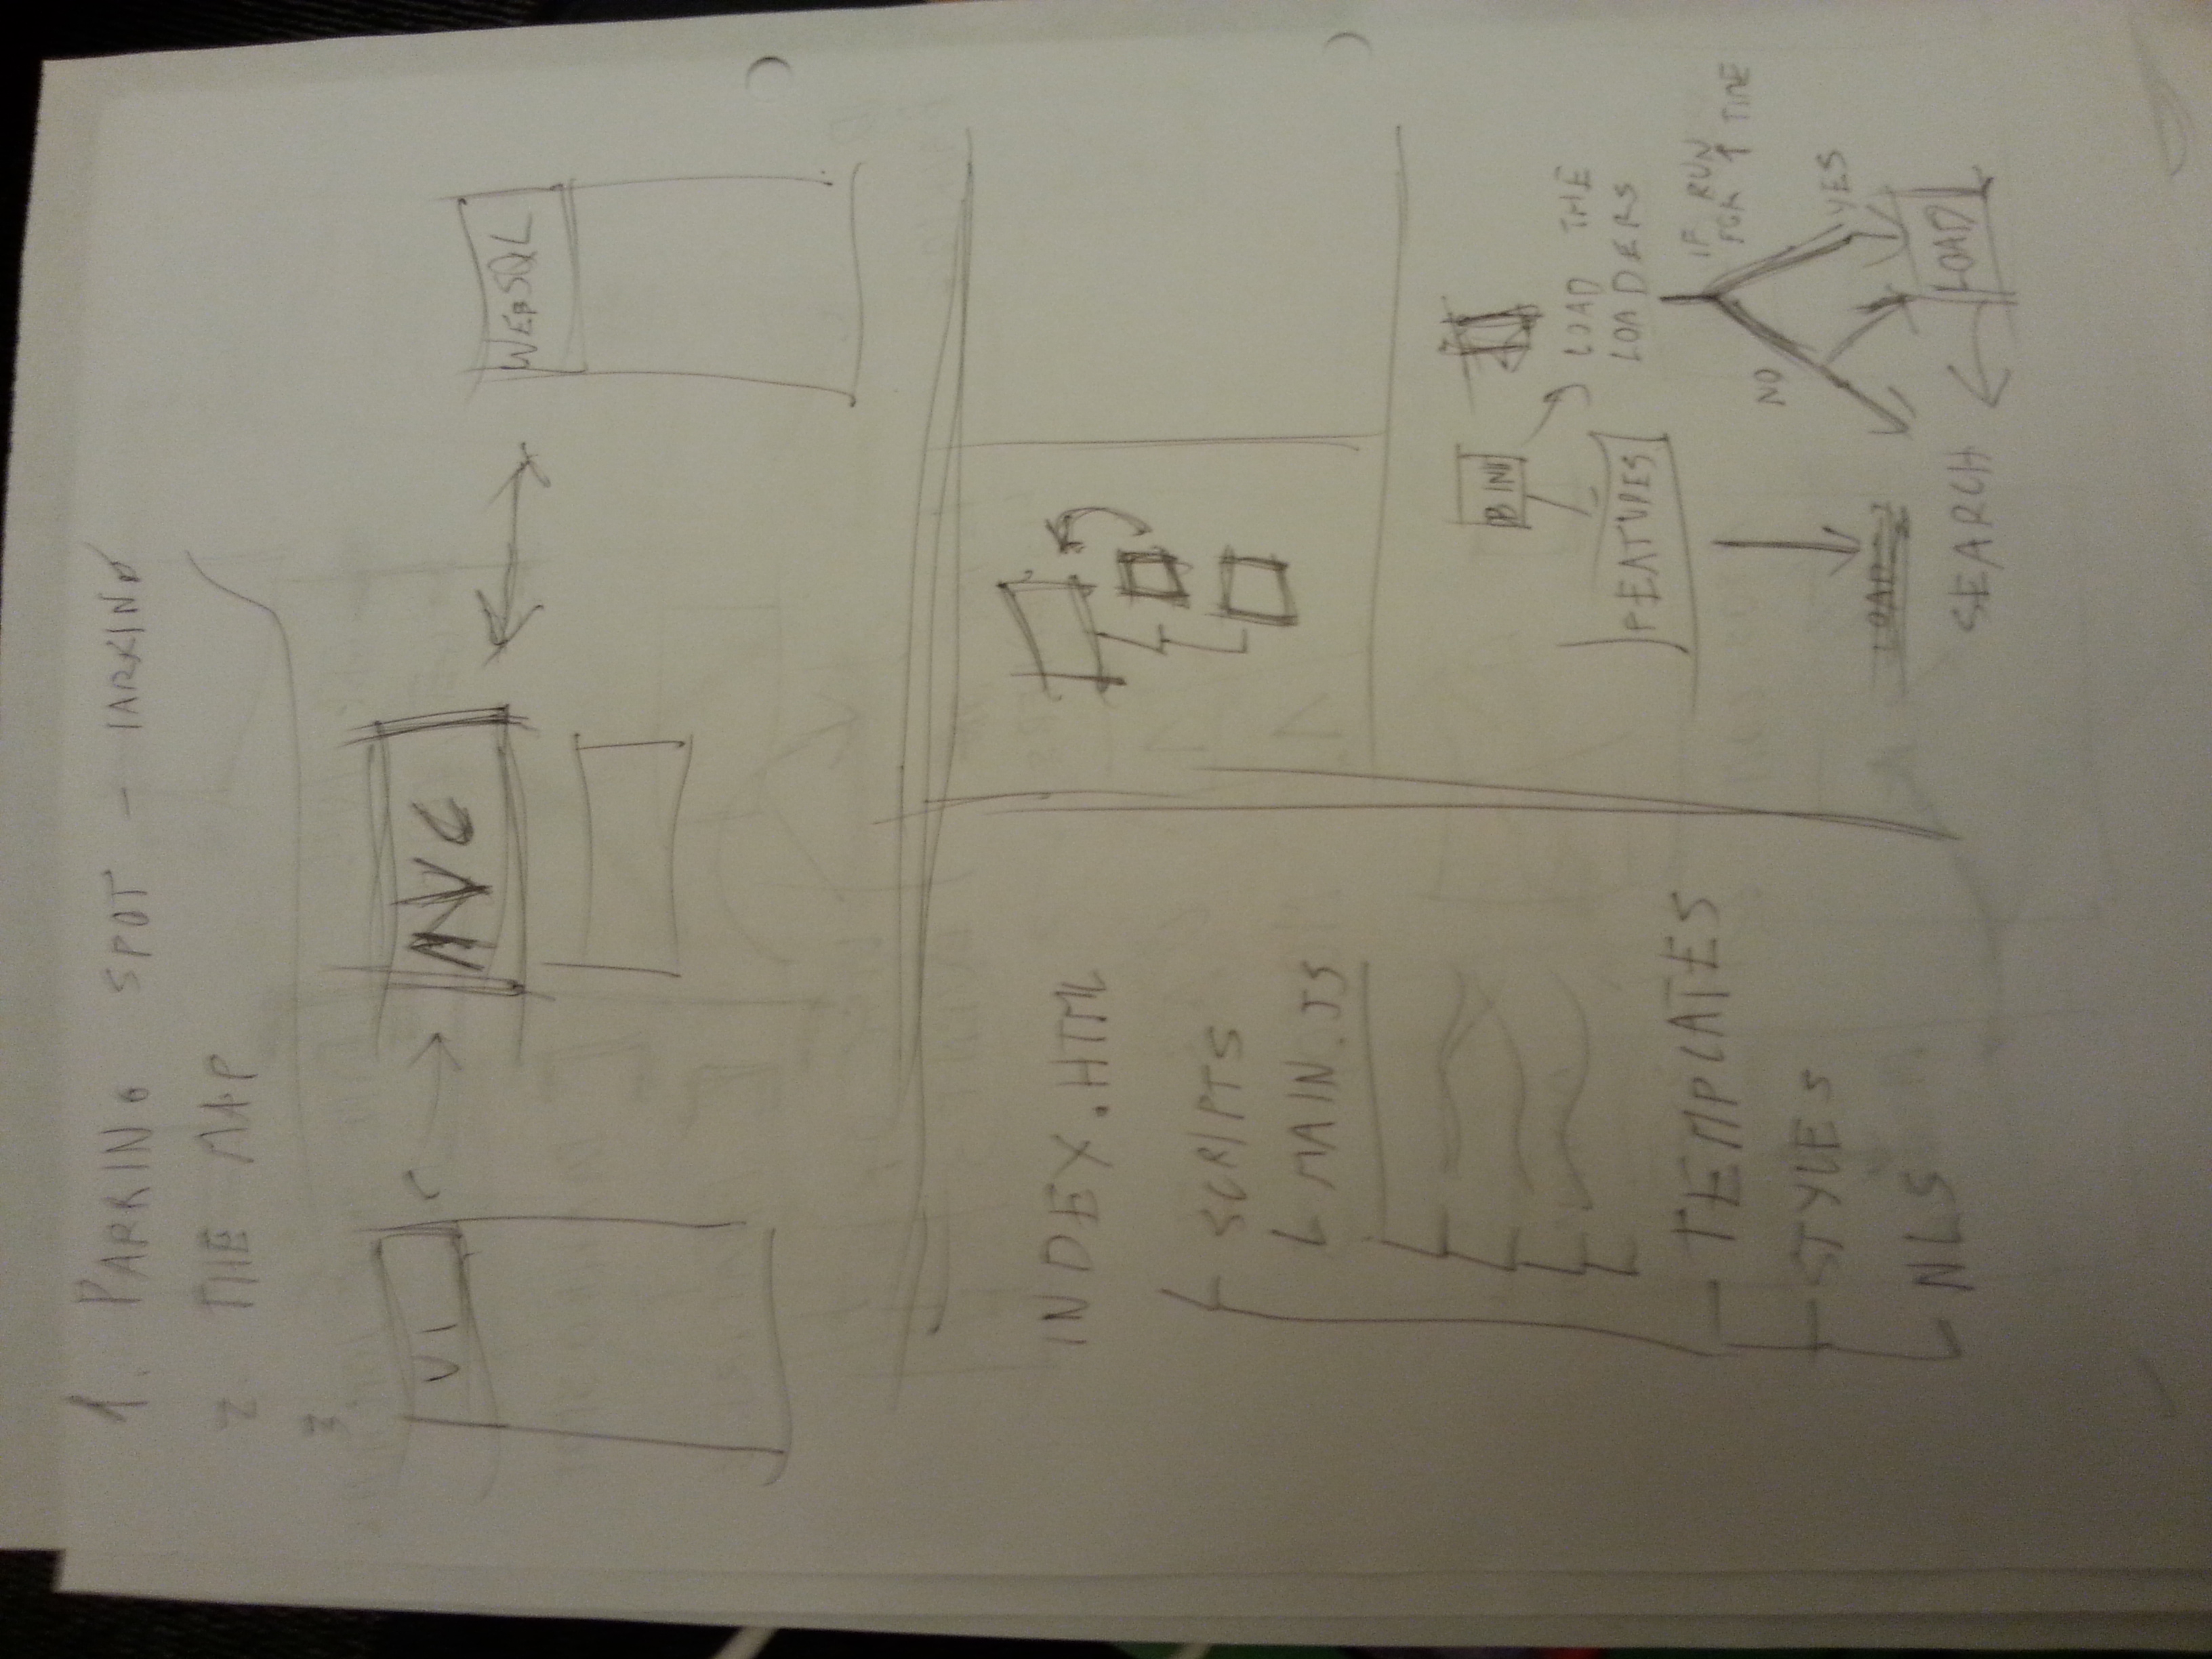 1. PARKING SPOT - PARKING
2. THE MAP
3.
UI
MVC
WEBSQL
INDEX.HTML
SCRIPTS
MAIN.JS
TEMPLATES
STYLES
NLS
DB INIT
LOAD THE
LOADERS
FEATURES
IF RUN
FOR 1 TIME
NO
YES
LOAD
LOAD
SEARCH